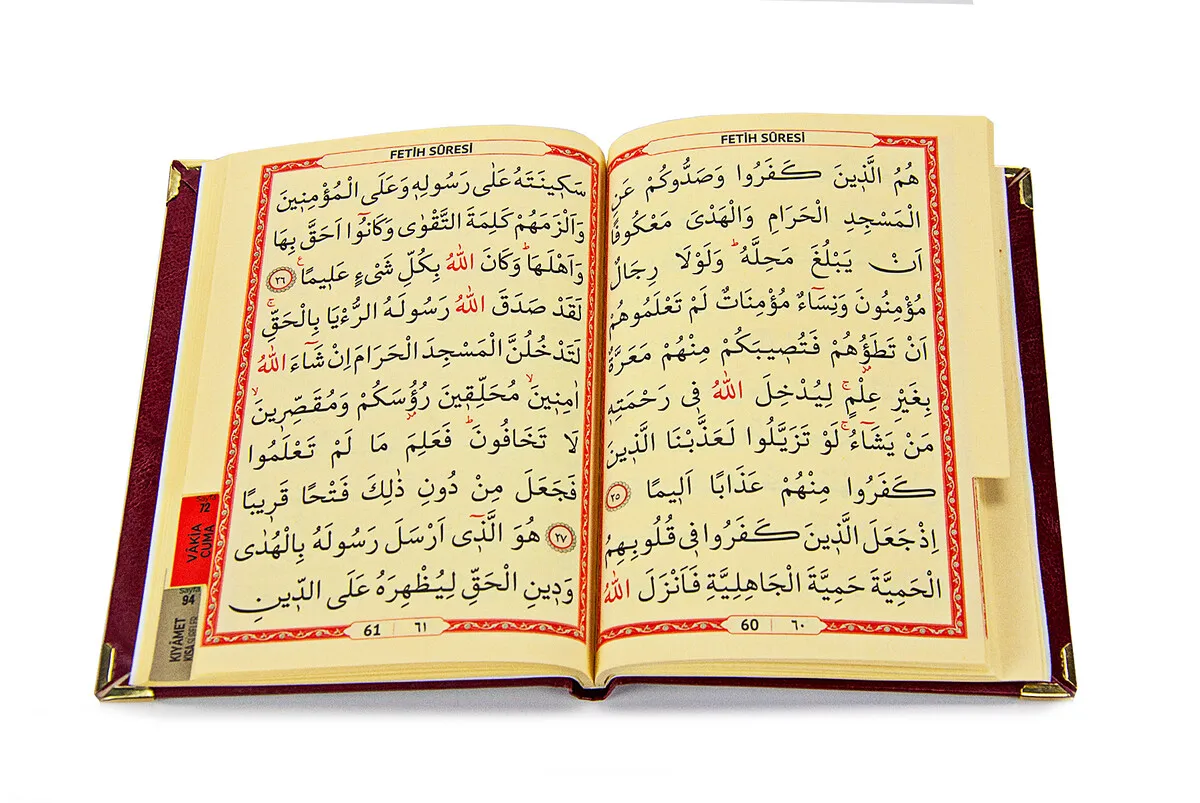 FETİH SÛRESİ
هُمُ الَّذ۪ينَ كَفَرُوا وَصَدُّوكُمْ عَنِ
الْمَسْجِدِ الْحَرَامِ وَالْهَدْىَ مَعْكُوفًا
اَنْ يَبْلُغَ مَحِلَّهُۜ وَلَوْلَا رِجَالٌ
مُؤْمِنُونَ وَنِسَٓاءٌ مُؤْمِنَاتٌ لَمْ تَعْلَمُوهُمْ
اَنْ تَطَؤُ۫هُمْ فَتُص۪يبَكُمْ مِنْهُمْ مَعَرَّةٌ
بِغَيْرِ عِلْمٍۚ لِيُدْخِلَ اللّٰهُ ف۪ى رَحْمَتِه۪
مَنْ يَشَٓاءُۚ لَوْ تَزَيَّلُوا لَعَذَّبْنَا الَّذ۪ينَ
كَفَرُوا مِنْهُمْ عَذَابًا اَل۪يمًا ﴿٢٥﴾
اِذْ جَعَلَ الَّذ۪ينَ كَفَرُوا ف۪ى قُلُوبِهِمُ
الْحَمِيَّةَ حَمِيَّةَ الْجَاهِلِيَّةِ فَاَنْزَلَ اللّٰهُ
60 | ٦٠
FETİH SÛRESİ
سَك۪ينَتَهُ عَلٰى رَسُولِه۪ وَعَلَى الْمُؤْمِن۪ينَ
وَاَلْزَمَهُمْ كَلِمَةَ التَّقْوٰى وَكَانُٓوا اَحَقَّ بِهَا
وَاَهْلَهَاۜ وَكَانَ اللّٰهُ بِكُلِّ شَىْءٍ عَل۪يمًا۟ ﴿٢٦﴾
لَقَدْ صَدَقَ اللّٰهُ رَسُولَهُ الرُّءْيَا بِالْحَقِّۚ
لَتَدْخُلُنَّ الْمَسْجِدَ الْحَرَامَ اِنْ شَٓاءَ اللّٰهُ
اٰمِن۪ينَۙ مُحَلِّق۪ينَ رُؤُ۫سَكُمْ وَمُقَصِّر۪ينَۙ
لَا تَخَافُونَۜ فَعَلِمَ مَا لَمْ تَعْلَمُوا
فَجَعَلَ مِنْ دُونِ ذٰلِكَ فَتْحًا قَر۪يبًا
﴿٢٧﴾ هُوَ الَّذ۪ٓى اَرْسَلَ رَسُولَهُ بِالْهُدٰى
وَد۪ينِ الْحَقِّ لِيُظْهِرَهُ عَلَى الدّ۪ينِ
61 | ٦١
Sayfa
72
VÂKIA
CUMA
Sayfa
94
KIYÂMET
KISA SÛRELER